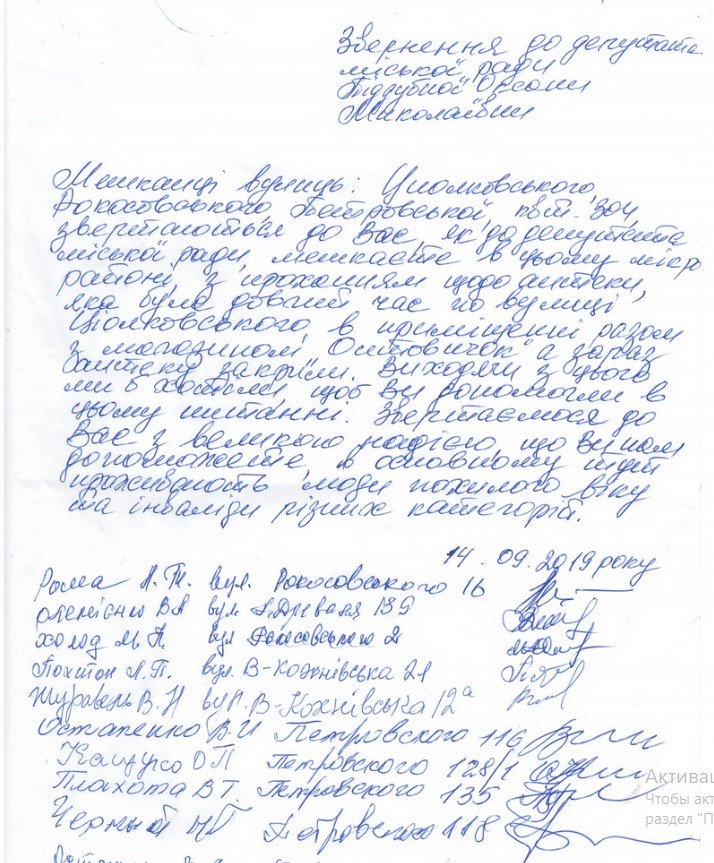 Звернення до депутата
міської ради
Піддубної Оксани
Миколаївни
Мешканці вулиць: Циолковського,
Рокосовського, Петровської, звер
звертаються до Вас, як до депутата
міської ради, мешкаєте в цьому мікро
районі, з проханням щодо аптеки,
яка була довгий час по вулиці
Ціолковського, в приміщенні разом
з магазином, а зараз
аптеку закрили. Виходячи з цього
ми б хотіли, щоб Ви допомогли в
цьому питанні. Звертаємося до
Вас з великою надією, що Ви нам
допоможете, в основному тут
проживають люди похилого віку
та інваліди різних категорій.
14.09.2019 року
Л. вул. Рокосовського 16
В А вул 139
Холод М. П. вул 2
Л.П. вул. В-Кохнівська 21
Журавель В. Н вул. В-Кохнівська 12а
Остапенко В. И Петровского 116
О П Петровского 128/1
Плахота В Т Петровского 135
Черный Петровского 118
Активац
Чтобы акт
раздел "П